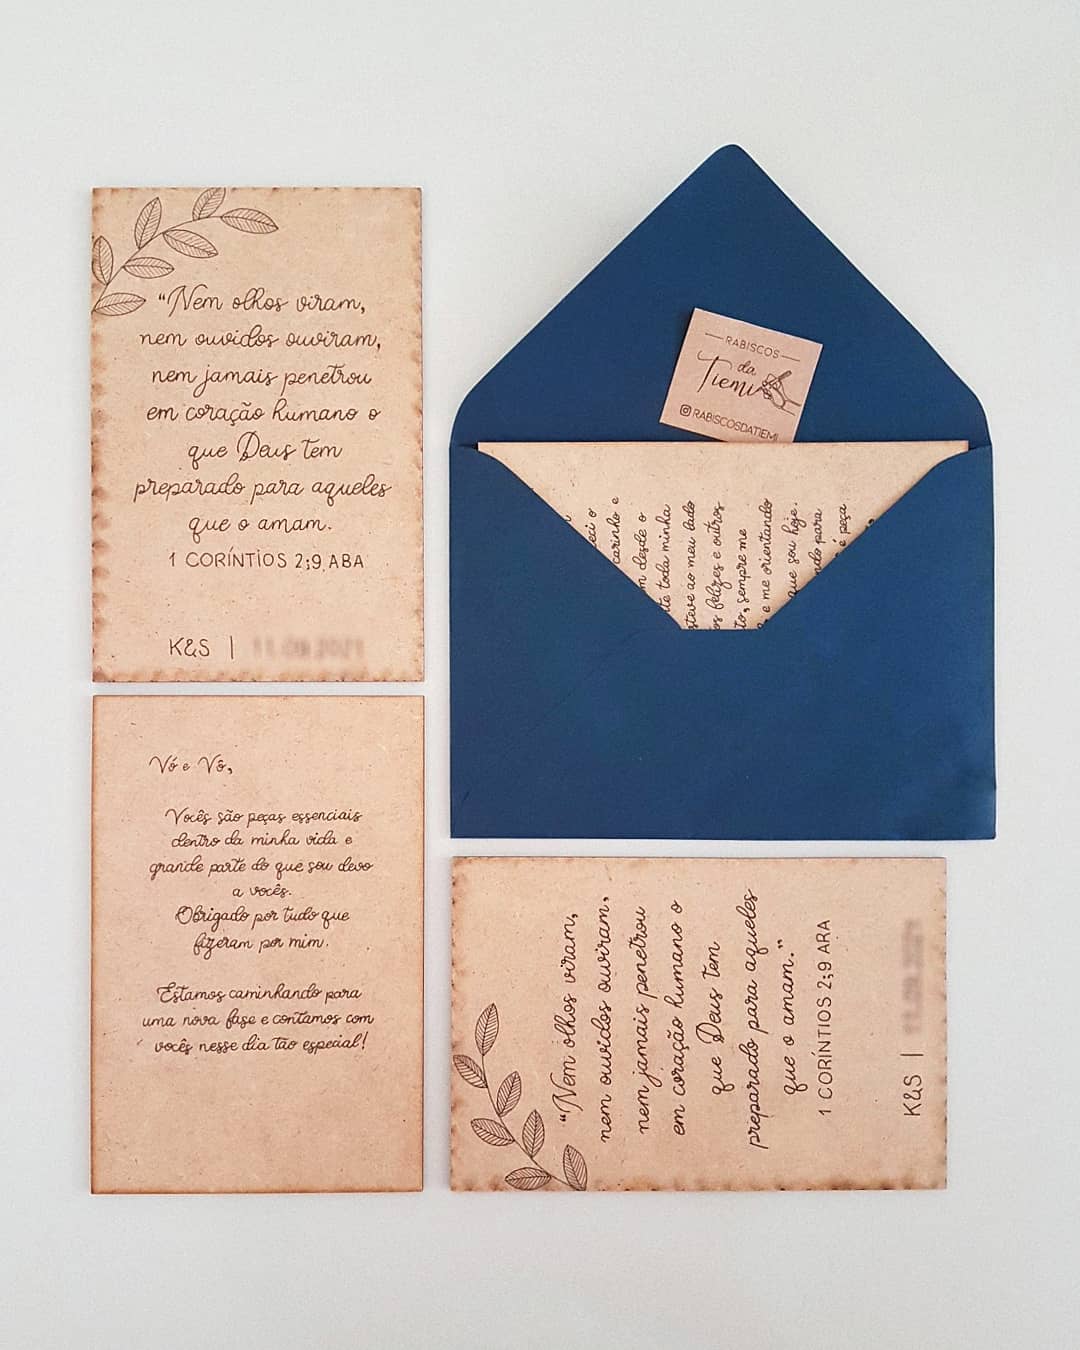 “Nem olhos viram,
nem ouvidos ouviram,
nem jamais penetrou
em coração humano o
que Deus tem
preparado para aqueles
que o amam.
1 CORÍNTIOS 2;9 ABA
K&S |
Vó e Vô,
Vocês são peças essenciais
dentro da minha vida e
grande parte do que sou devo
a vocês.
Obrigado por tudo que
fizeram por mim.
Estamos caminhando para
uma nova fase e contamos com
vocês nesse dia tão especial!
RABISCOS
da
Tiemi
RABISCOSDATIEMI
carinho e
desde o
toda minha
ao meu lado
felizes e outros
sempre me
e me orientando
que sou hoje.
para
é peça
“Nem olhos viram,
nem ouvidos ouviram,
nem jamais penetrou
em coração humano o
que Deus tem
preparado para aqueles
que o amam.”
1 CORÍNTIOS 2;9 ARA
K&S |